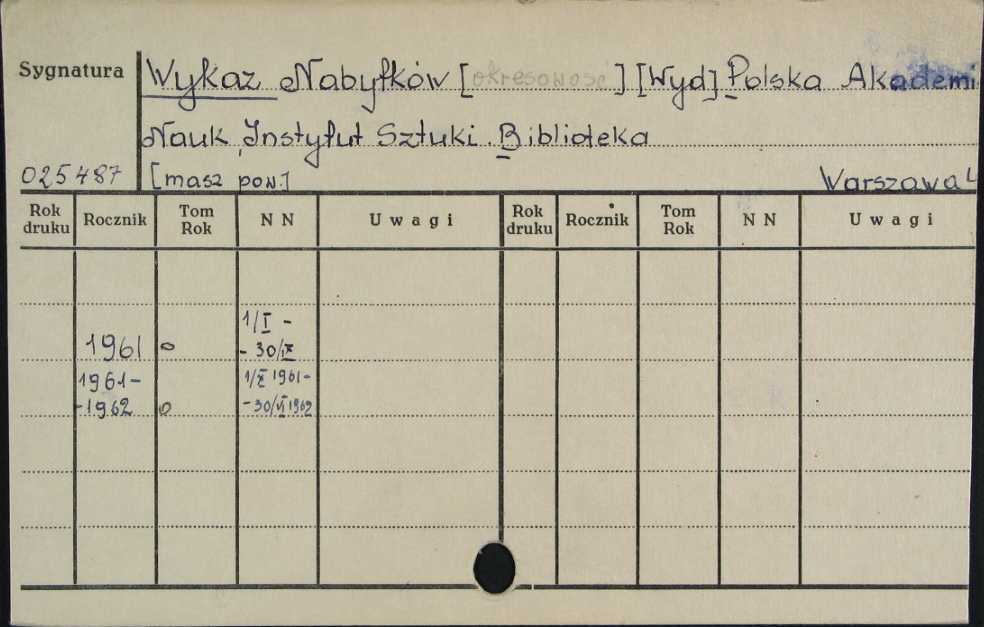 Sygnatura
Wykaz Nabytków [okresowość] [Wyd] Polska Akademi
Nauk Instytut Sztuki. Biblioteka
025487 [masz pow.] Warszawa
Rok druku Rocznik Tom Rok N N Uwagi Rok druku Rocznik Tom Rok N N Uwagi
1/I -
1961 o - 30/IX
1961- 1/X 1961-
-1962 o - 30/VI 1962